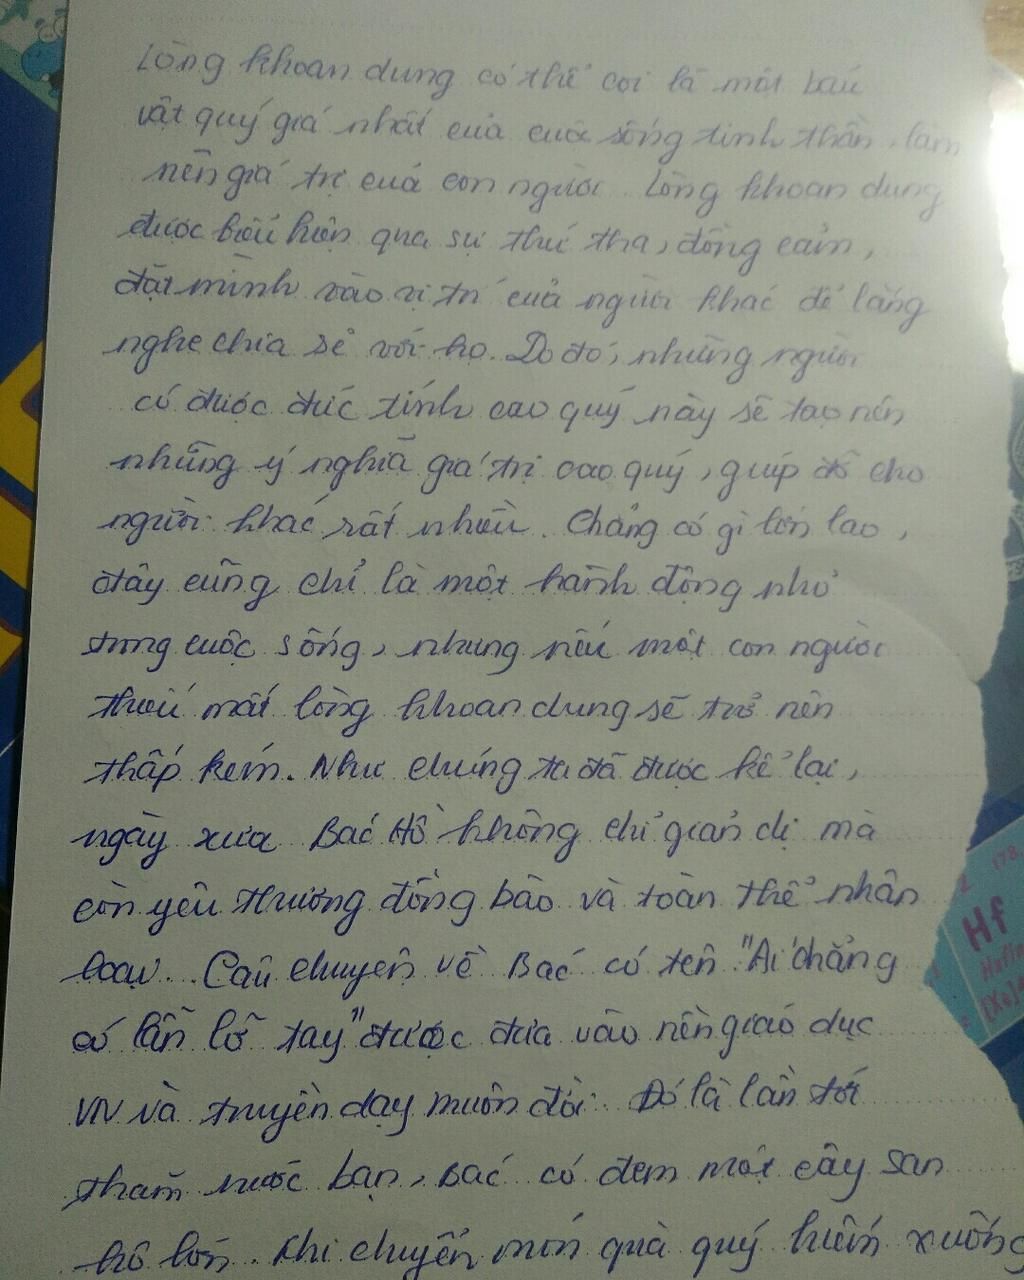 Lòng khoan dung có thể coi là một báu
vật quý giá nhất của cuộc sống tinh thần, làm
nên giá trị của con người. Lòng khoan dung
được biểu hiện qua sự thứ tha, đồng cảm,
đặt mình vào vị trí của người khác để lắng
nghe chia sẻ với họ. Do đó, những người
có được đức tính cao quý này sẽ tạo nên
những ý nghĩa giá trị cao quý, giúp đỡ cho
người khác rất nhiều. Chẳng có gì lớn lao,
đây cũng chỉ là một hành động nhỏ
trong cuộc sống, nhưng nếu một con người
thiếu mất lòng khoan dung sẽ trở nên
thấp kém. Như chúng ta đã được kể lại,
ngày xưa Bác Hồ không chỉ giản dị mà
còn yêu thương đồng bào và toàn thể nhân
loại. Câu chuyện về Bác có tên "Ai chẳng
có lần lỡ tay" được đưa vào nền giáo dục
VN và truyền dạy muôn đời. Đó là lần tới
thăm nước bạn, Bác có đem một cây san
hô lớn. Khi chuyển món quà quý hiếm xuống
Hf
178.